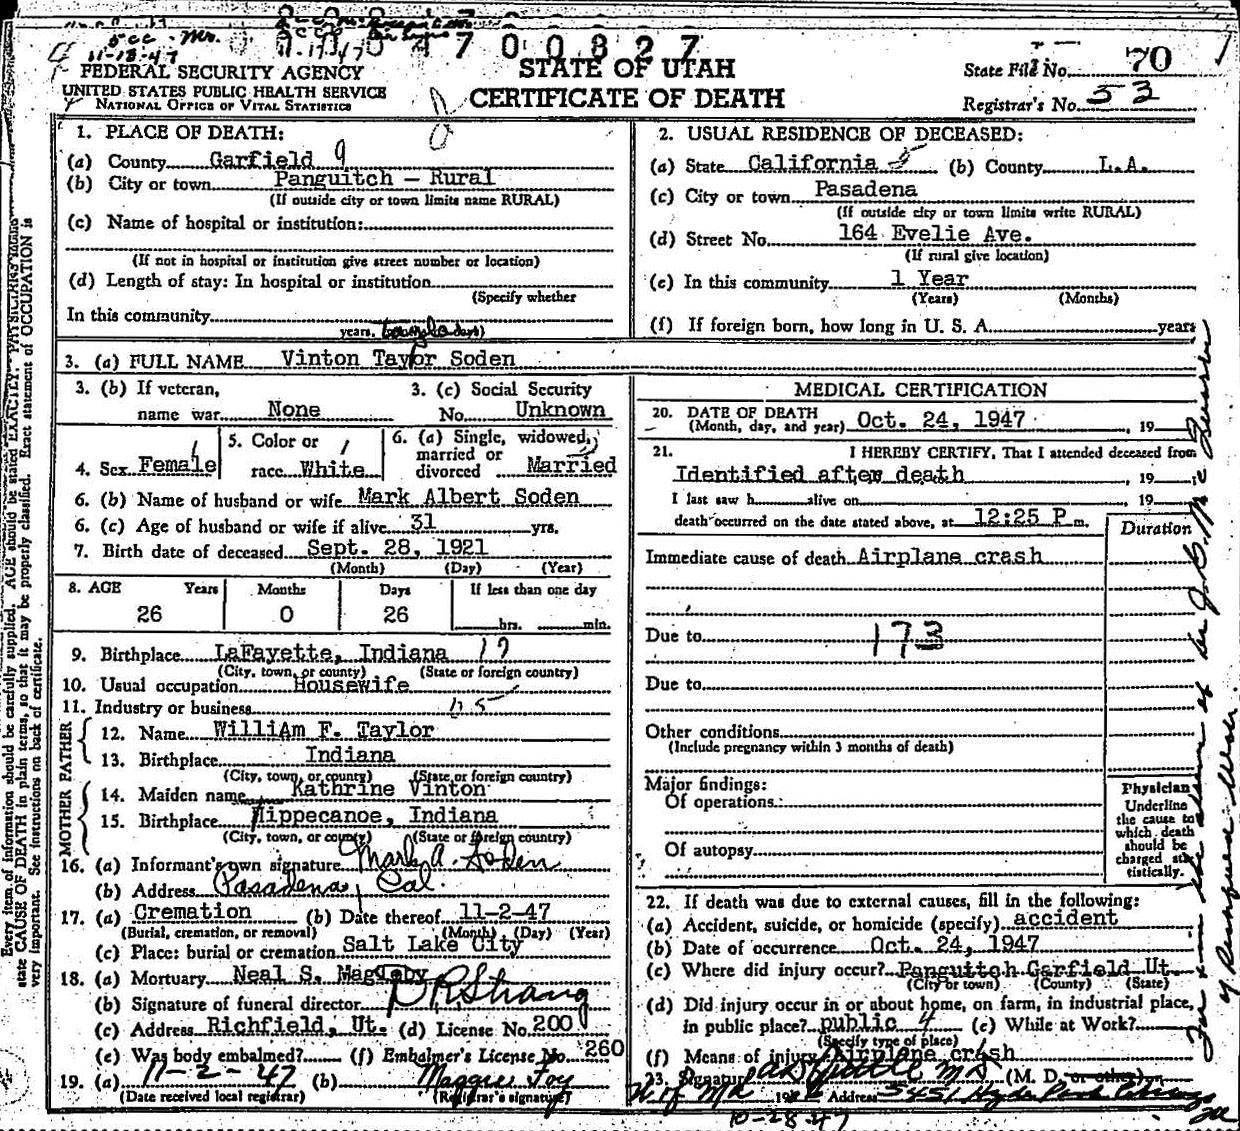 11-18-47
11.17.47
4700827
FEDERAL SECURITY AGENCY
UNITED STATES PUBLIC HEALTH SERVICE
NATIONAL OFFICE OF VITAL STATISTICS
STATE OF UTAH
CERTIFICATE OF DEATH
State File No. 70
Registrar's No. 53
1. PLACE OF DEATH:
(a) County Garfield 9
(b) City or town Panguitch - Rural
(If outside city or town limits name RURAL)
(c) Name of hospital or institution:
(If not in hospital or institution give street number or location)
(d) Length of stay: In hospital or institution
(Specify whether
In this community
years, days)
2. USUAL RESIDENCE OF DECEASED:
(a) State California (b) County L.A.
(c) City or town Pasadena
(If outside city or town limits write RURAL)
(d) Street No. 164 Evelie Ave.
(If rural give location)
(e) In this community 1 Year
(Years) (Months)
(f) If foreign born, how long in U. S. A. years
3. (a) FULL NAME Vinton Taylor Soden
3. (b) If veteran,
name war None
3. (c) Social Security
No. Unknown
4. Sex Female
5. Color or
race White
6. (a) Single, widowed,
married or
divorced Married
6. (b) Name of husband or wife Mark Albert Soden
6. (c) Age of husband or wife if alive 31 yrs.
7. Birth date of deceased Sept. 28, 1921
(Month) (Day) (Year)
8. AGE Years Months Days If less than one day
26 0 26 hrs. min.
9. Birthplace LaFayette, Indiana 17
(City, town, or county) (State or foreign country)
10. Usual occupation Housewife
11. Industry or business
FATHER
12. Name WilliAm F. Taylor
13. Birthplace Indiana
(City, town, or county) (State or foreign country)
MOTHER
14. Maiden name Kathrine Vinton
15. Birthplace Tippecanoe, Indiana
(City, town, or county) (State or foreign country)
16. (a) Informant's own signature Mark A. Soden
(b) Address Pasadena, Cal.
17. (a) Cremation (b) Date thereof 11-2-47
(Burial, cremation, or removal) (Month) (Day) (Year)
(c) Place: burial or cremation Salt Lake City
18. (a) Mortuary Neal S. Magleby
(b) Signature of funeral director D R Strang
(c) Address Richfield, Ut. (d) License No. 200
(e) Was body embalmed? (f) Embalmer's License No. 260
19. (a) 11-2-47 (b) Maggie Foy
(Date received local registrar) (Registrar's signature)
MEDICAL CERTIFICATION
20. DATE OF DEATH
(Month, day, and year) Oct. 24, 1947, 19
21. I HEREBY CERTIFY, That I attended deceased from
Identified after death, 19
I last saw h alive on , 19
death occurred on the date stated above, at 12:25 P m.
Duration
Immediate cause of death Airplane crash
Due to 173
Due to
Other conditions
(Include pregnancy within 3 months of death)
Major findings:
Of operations:
Of autopsy
Physician
Underline
the cause to
which death
should be
charged sta-
tistically.
22. If death was due to external causes, fill in the following:
(a) Accident, suicide, or homicide (specify) accident
(b) Date of occurrence Oct. 24, 1947
(c) Where did injury occur? Panguitch Garfield Ut.
(City or town) (County) (State)
(d) Did injury occur in or about home, on farm, in industrial place,
in public place? public 4 (e) While at Work?
(Specify type of place)
(f) Means of injury Airplane crash
23. Signature M D (M. D. or other)
Address 5451 Hyde Park Chicago
Ill
10-28-47
Every item of information should be carefully supplied. AGE should be stated EXACTLY. PHYSICIANS should
state CAUSE OF DEATH in plain terms, so that it may be properly classified. Exact statement of OCCUPATION is
very important. See instructions on back of certificate.